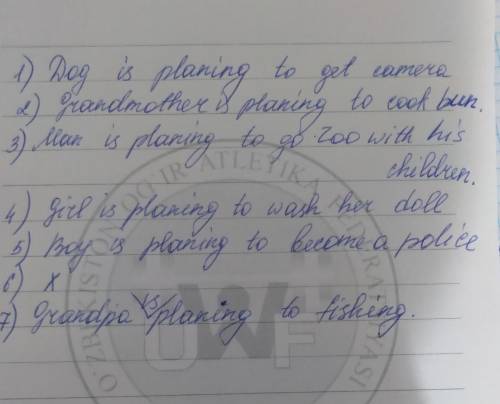 1) Dog is planing to get camera
2) Grandmother is planing to cook bun.
3) Man is planing to go zoo with his
children.
4) Girl is planing to wash her doll
5) Boy is planing to become a police
6) X
7) Grandpa is planing to fisheng.
O'ZBEKISTON OG'IR ATLETIKA FEDERATSIYASI
UWF